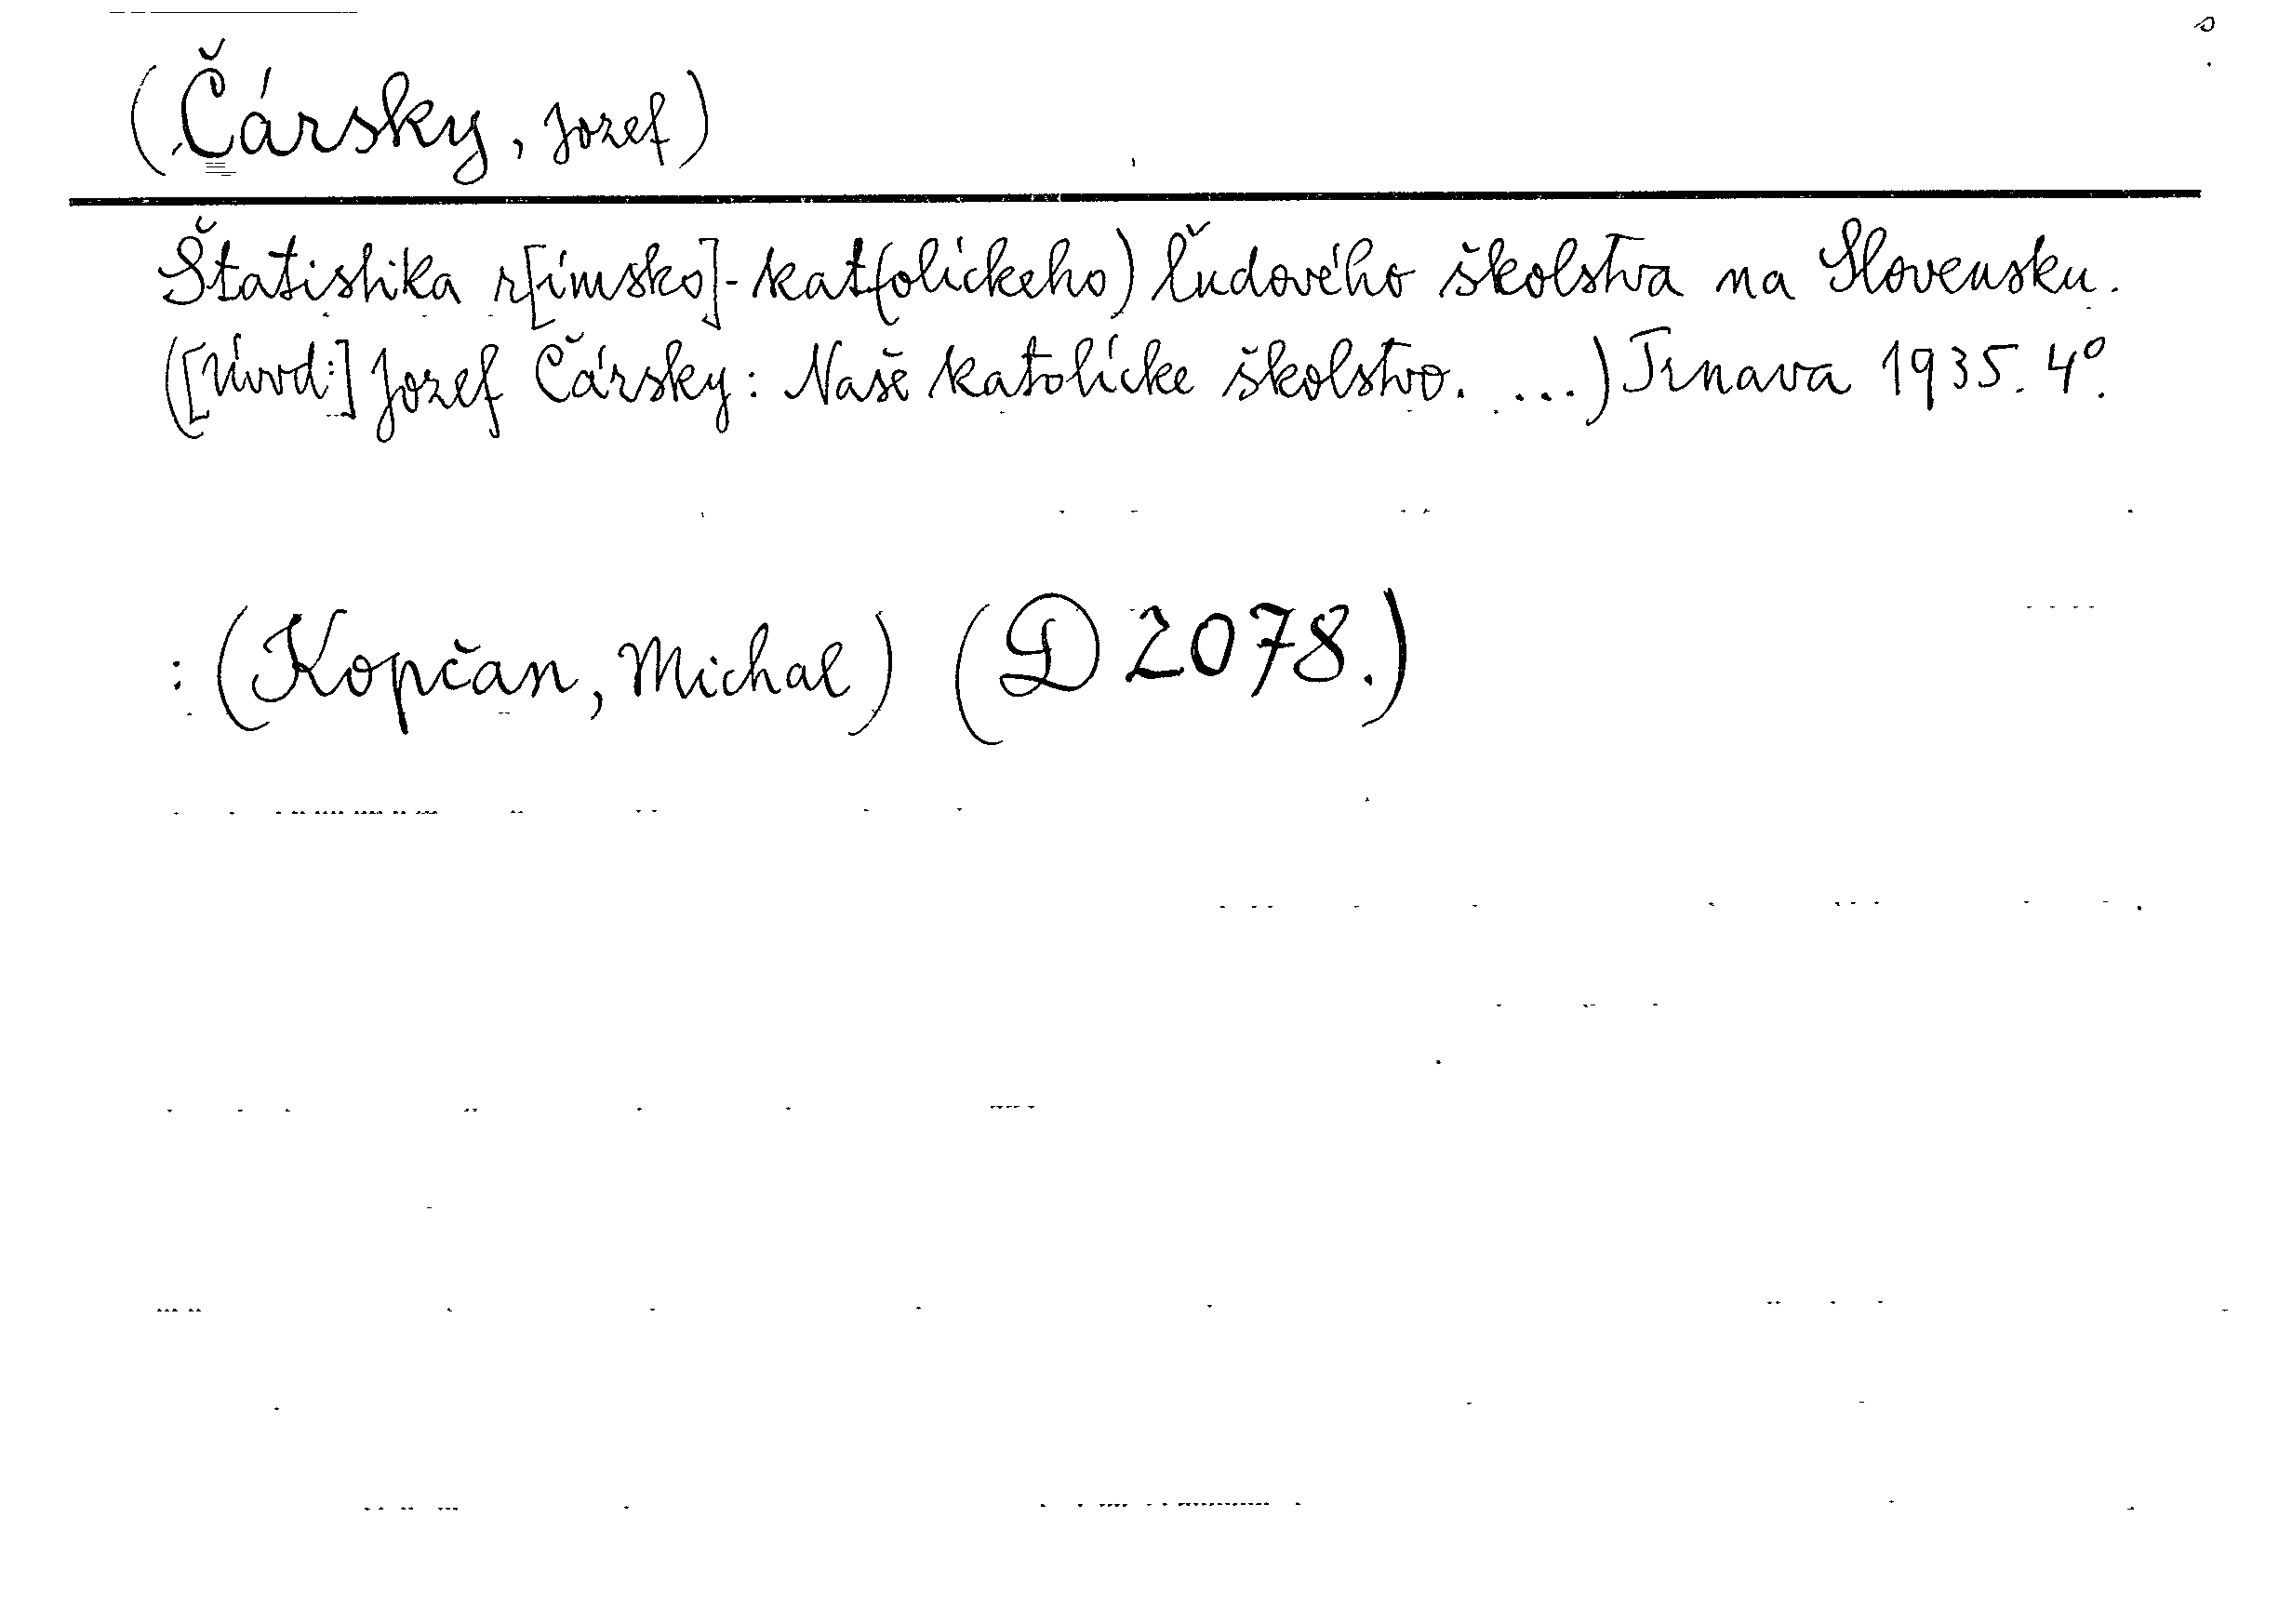 (Čársky, Jozef)
Štatistika r[ímsko]-kat(olíckeho) ľudového školstva na Slovensku.
([Úvod:] Jozef Čársky: Naše katolícke školstvo. ...) Trnava 1935. 4°.
: (Kopčan, Michal) (D 2078.)